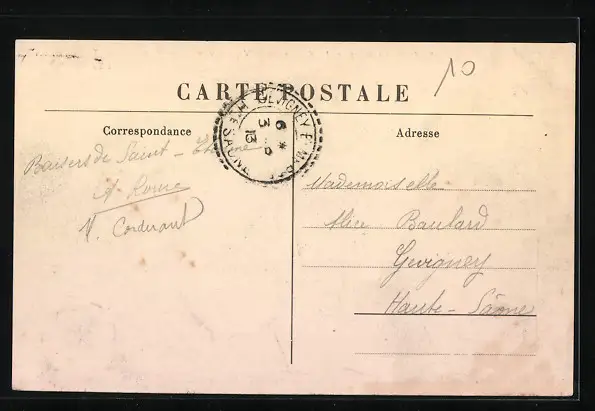 10
CARTE POSTALE
Correspondance
Adresse
GEVIGNEY ET MERCEY
HTE SAONE
6 *
3
13
Baisers de Saint-Etienne
Mademoiselle
Alice Baulard
Gevigney
Haute-Saône